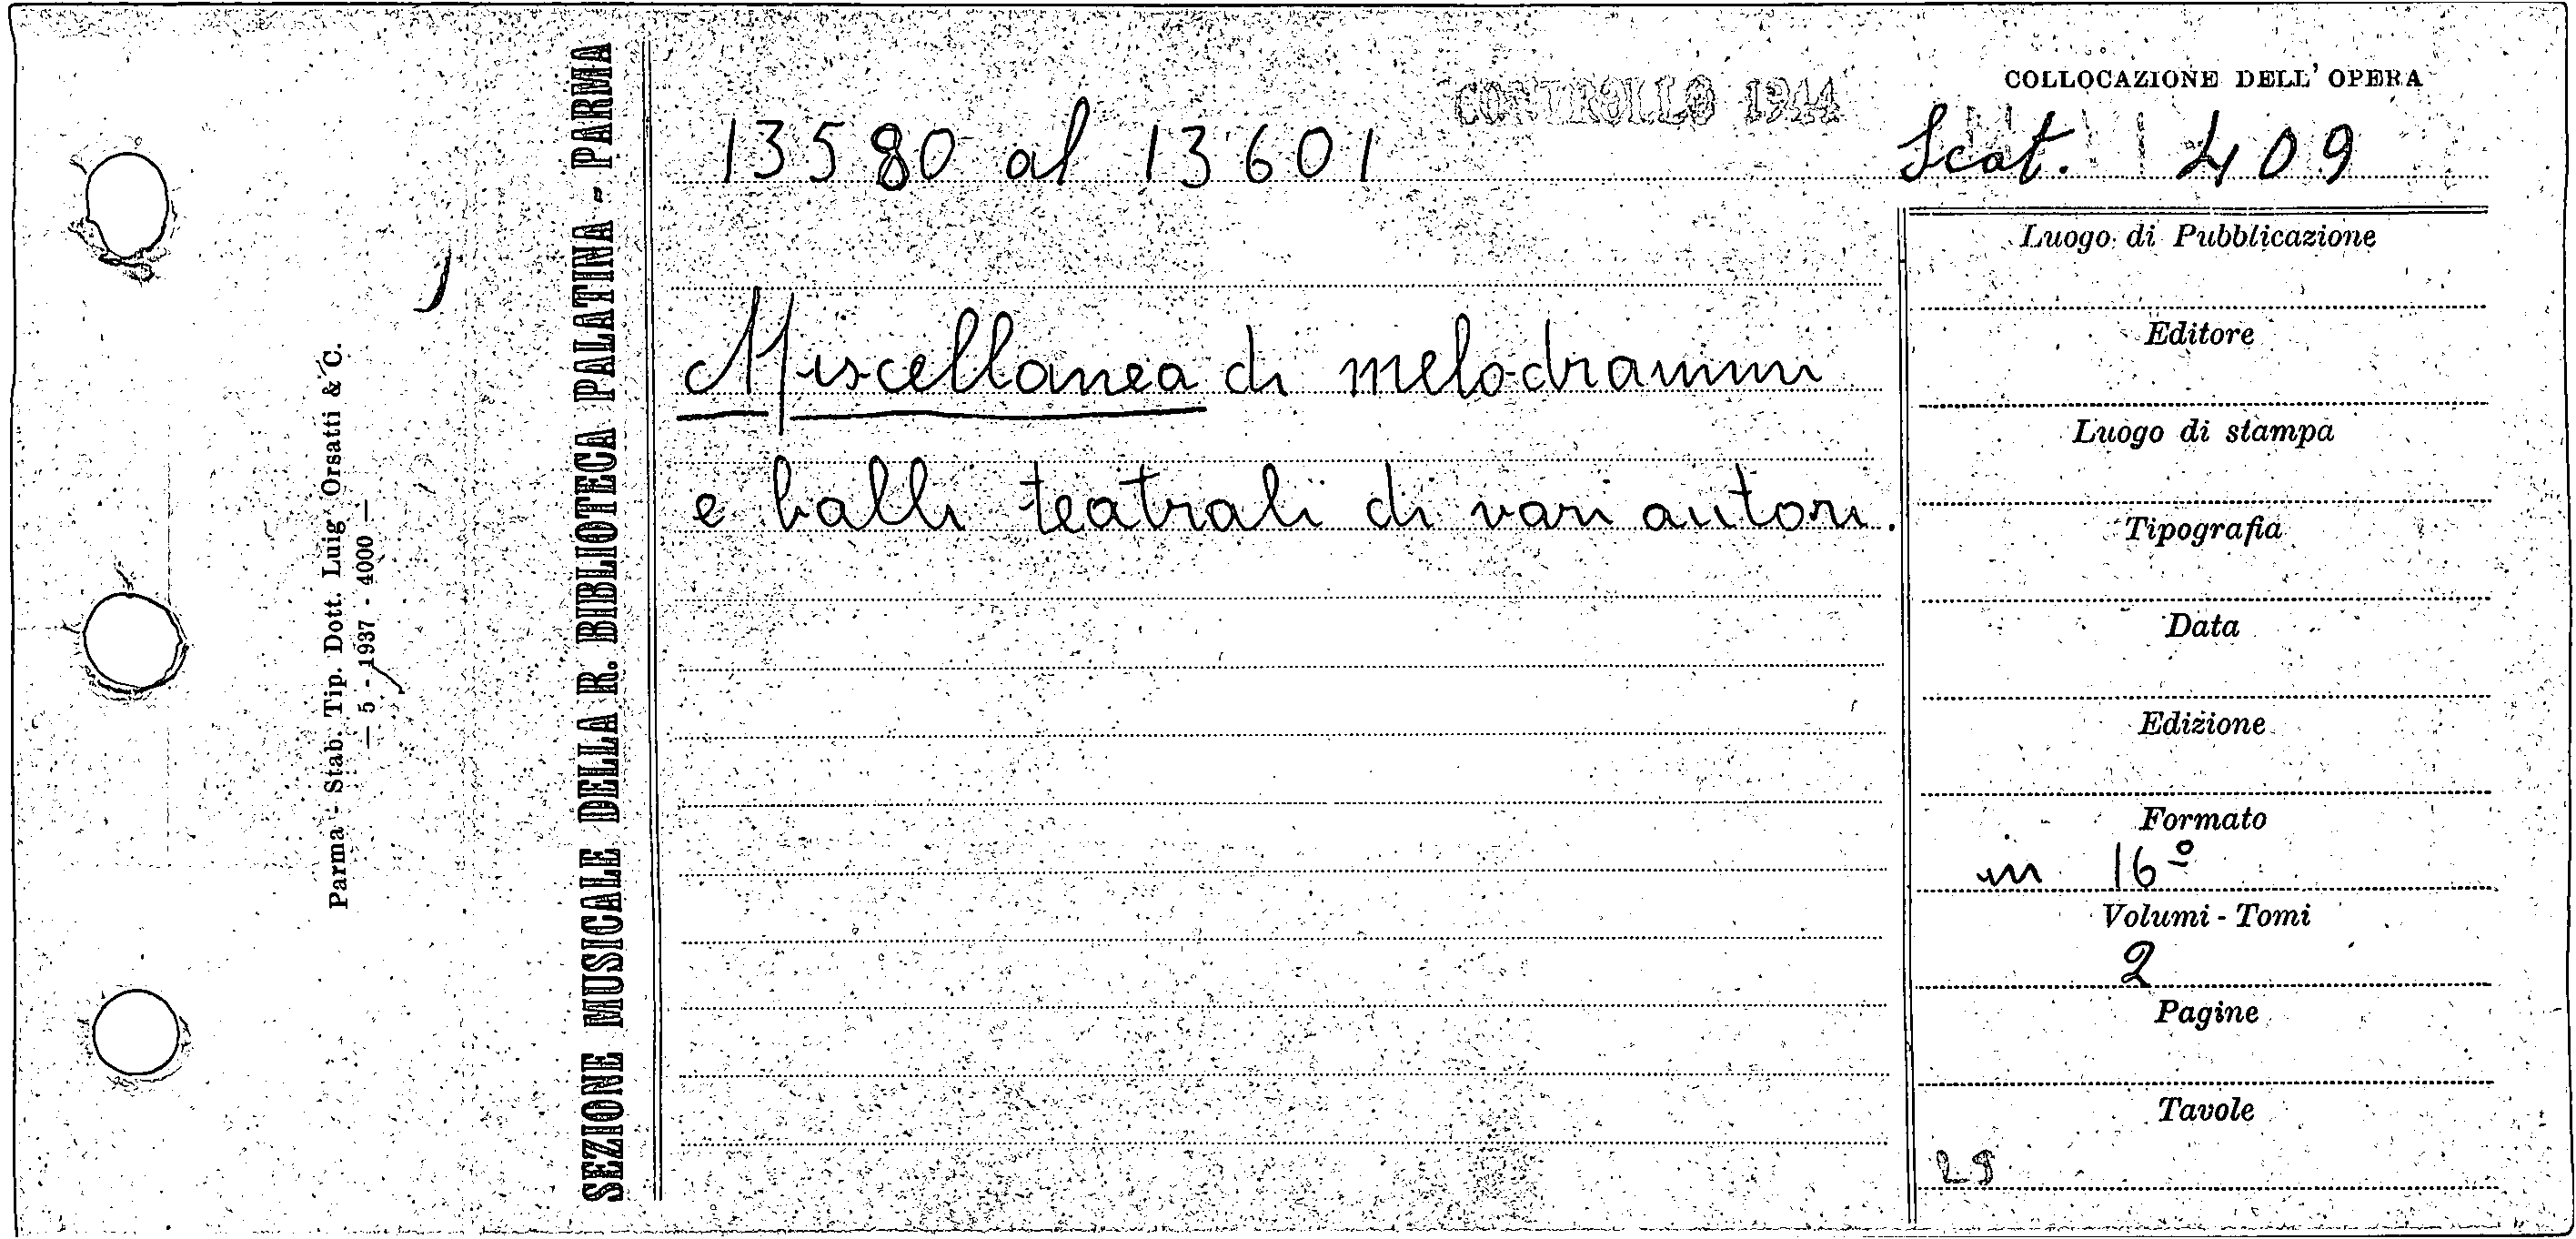 CONTROLLO 1944
COLLOCAZIONE DELL' OPERA
13580 al 13601
Scat. 409
Miscellanea di melodrammi
e balli teatrali di vari autori.
Luogo di Pubblicazione
Editore
Luogo di stampa
Tipografia
Data
Edizione
Formato
in 16º
Volumi - Tomi
2
Pagine
Tavole
SEZIONE MUSICALE DELLA R. BIBLIOTECA PALATINA - PARMA
Parma - Stab. Tip. Dott. Luigi Orsatti & C.
— 5 - 1937 - 4000 —